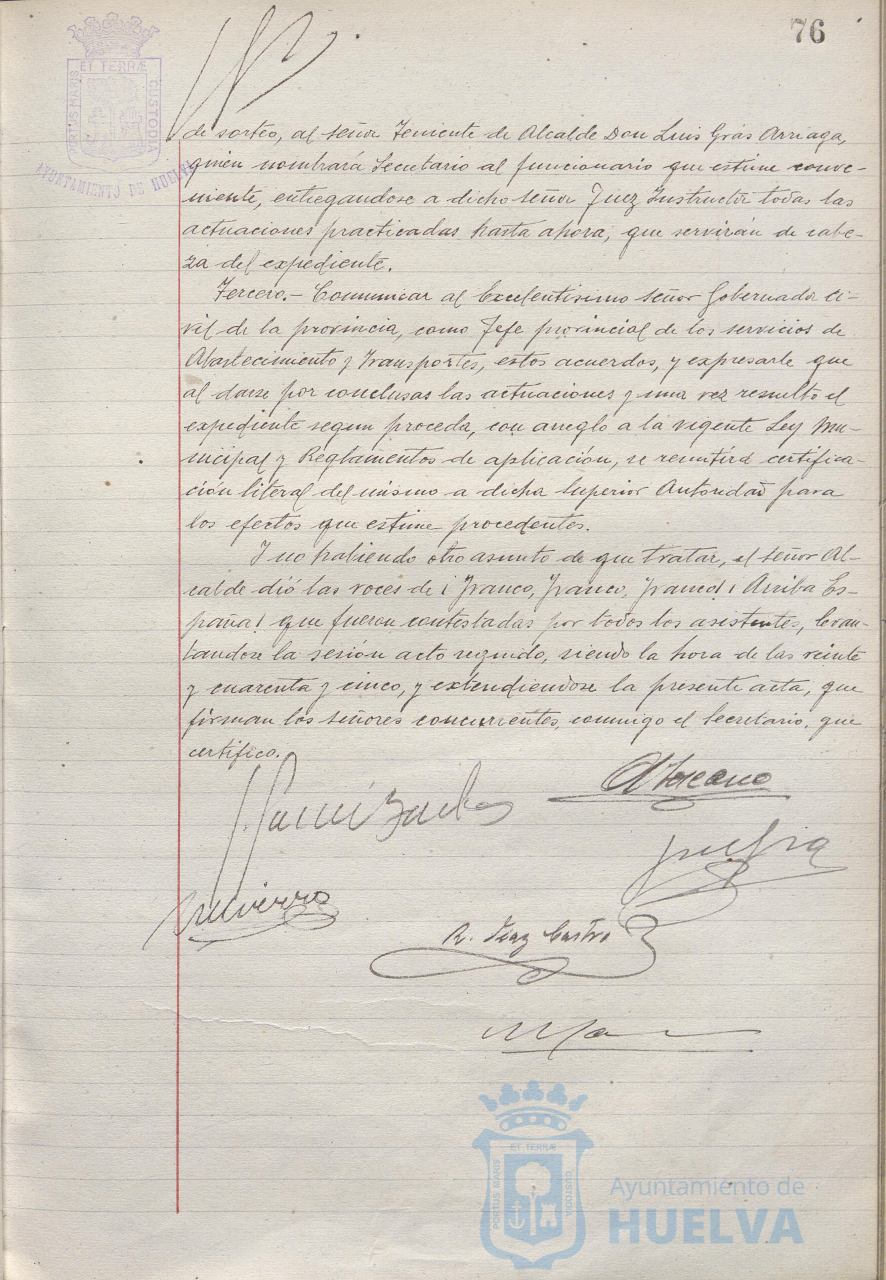 76
ET TERRÆ
PORTUS MARIS
CUSTODIA
AYUNTAMIENTO DE HUELVA
de sorteo, al señor Teniente de Alcalde Don Luis Gras Arriaga,
quien nombrará Secretario al funcionario que estime conve-
niente, entregandose a dicho señor Juez Instructor todas las
actuaciones practicadas hasta ahora, que servirán de cabe-
za del expediente.
Tercero.- Comunicar al Excelentisimo señor Gobernador Ci-
vil de la provincia, como Jefe provincial de los servicios de
Abastecimiento y Transportes, estos acuerdos, y expresarle que
al darse por conclusas las actuaciones y una vez resuelto el
expediente segun proceda, con arreglo a la vigente Ley Mu-
nicipal y Reglamentos de aplicación, se remitirá certifica-
ción literal del mismo a dicha Superior Autoridad para
los efectos que estime procedentes.
Y no habiendo otro asunto de que tratar, el señor Al-
calde dió las voces de ¡Franco, Franco, Franco! ¡Arriba Es-
paña! que fueron contestadas por todos los asistentes, levan-
tandose la sesión acto seguido, siendo la hora de las veinte
y cuarenta y cinco, y extendiendose la presente acta, que
firman los señores concurrentes, conmigo el Secretario, que
certifico.
R. Diaz Castro
ET TERRÆ
PORTUS MARIS
CUSTODIA
Ayuntamiento de
HUELVA